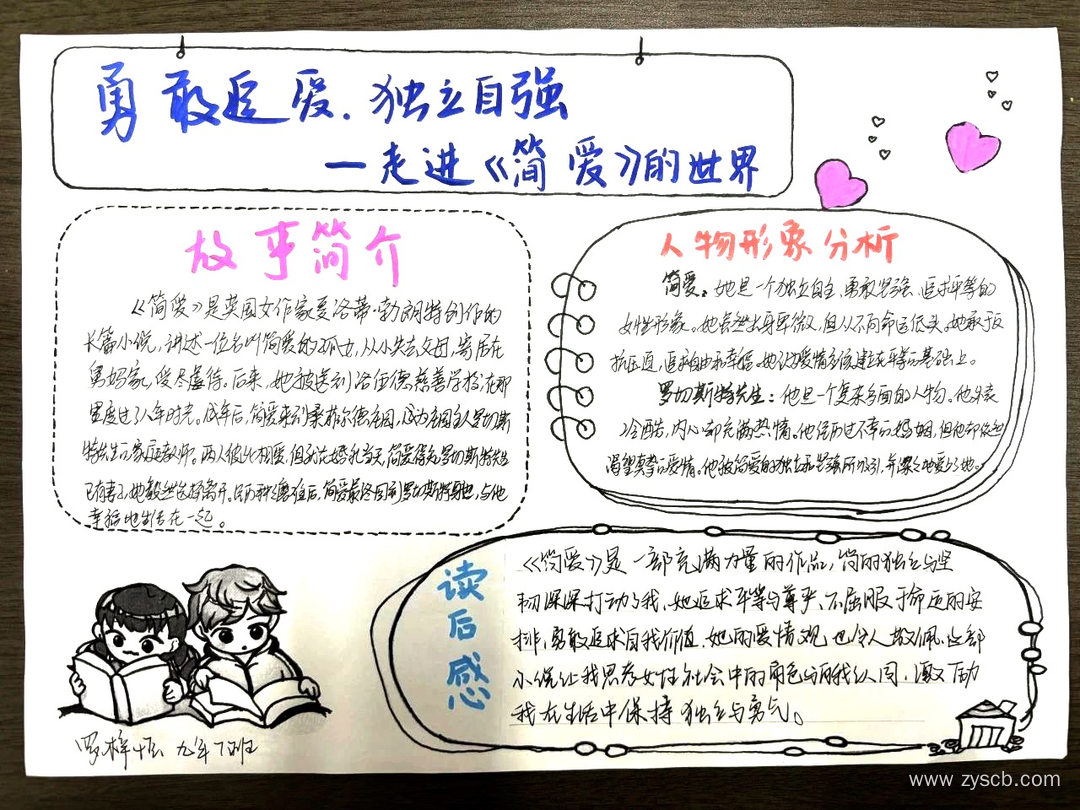 勇敢追爱.独立自强
一走进《简爱》的世界
故事简介
《简爱》是英国女作家夏洛蒂·勃朗特创作的
长篇小说,讲述一位名叫简爱的孤女,从小失去父母,寄居在
舅妈家,受尽虐待。后来,她被送到洛伍德慈善学校,在那
里度过了八年时光。成年后,简爱来到桑菲尔德庄园,成为庄园主人罗切斯
特先生的家庭教师。两人彼此相爱,但就在婚礼当天,简爱得知罗切斯特先生
已有妻子,她毅然选择离开。简爱最终回到罗切斯特身边,与他
幸福地生活在一起。
人物形象分析
简爱:她是一个独立自主、勇敢坚强、追求平等的
女性形象。她虽然出身卑微,但从不向命运低头。她敢于反
抗压迫,追求自由和幸福。她认为爱情应该建立在平等的基础上。
罗切斯特先生:他是一个复杂多面的人物。他外表
冷酷,内心却充满热情。他经历过不幸的婚姻,但他却依然
渴望真挚的爱情。他被简爱的独立和坚强所吸引,并深深地爱上了她。
读后感
《简爱》是一部充满力量的作品,简的独立与坚
韧深深打动了我,她追求平等与尊严、不屈服于命运的安
排,勇敢追求自我价值,她的爱情观,也令人敬佩,这部
小说让我思考女性在社会中的角色与自我认同,激励
我在生活中保持独立与勇气。
罗梓恒 九年7班
www.zyscb.com